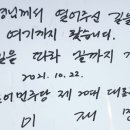 령님께서 열어주신 길을
여기까지 왔습니다.
길을 따라 끝까지 가
2021. 10. 22.
어민주당 제20대 대통
이 재 명